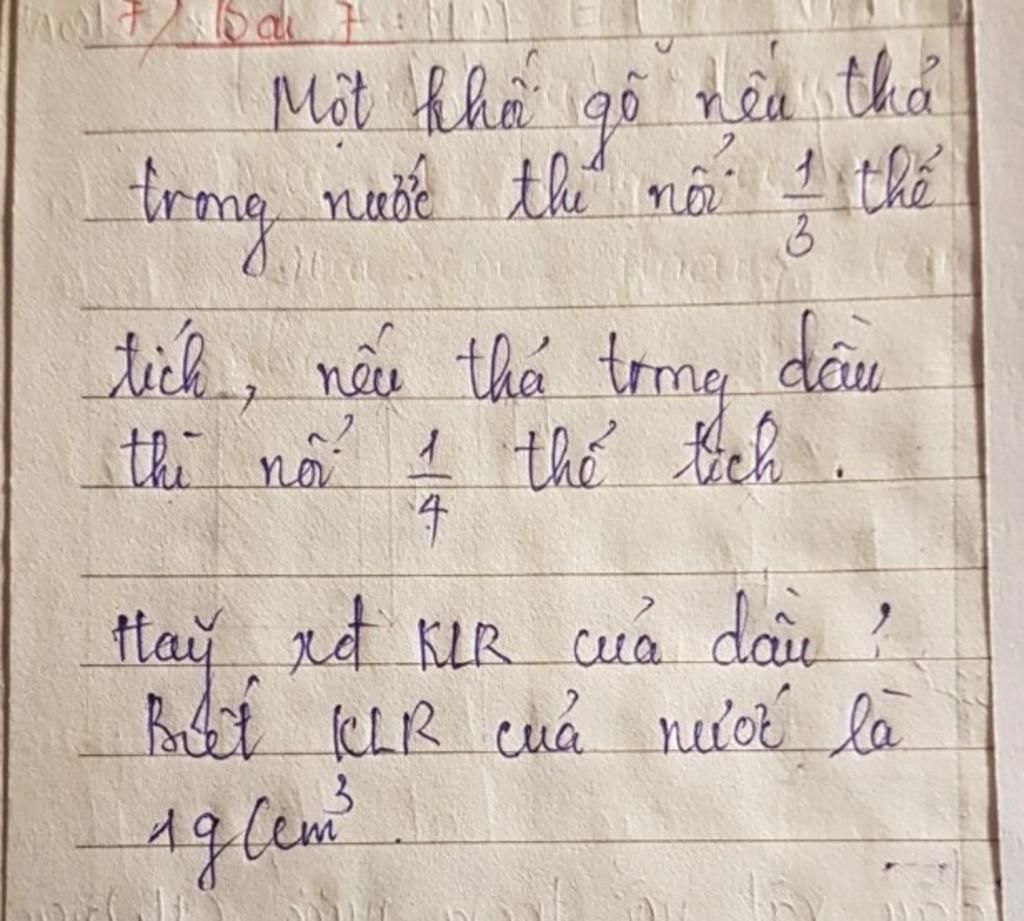 7) Bài 7:
Một khối gỗ nếu thả
trong nước thì nổi 1/3 thể
tích, nếu thả trong dầu
thì nổi 1/4 thể tích.
Hãy xđ KLR của dầu?
Biết KLR của nước là
1g/cm³.